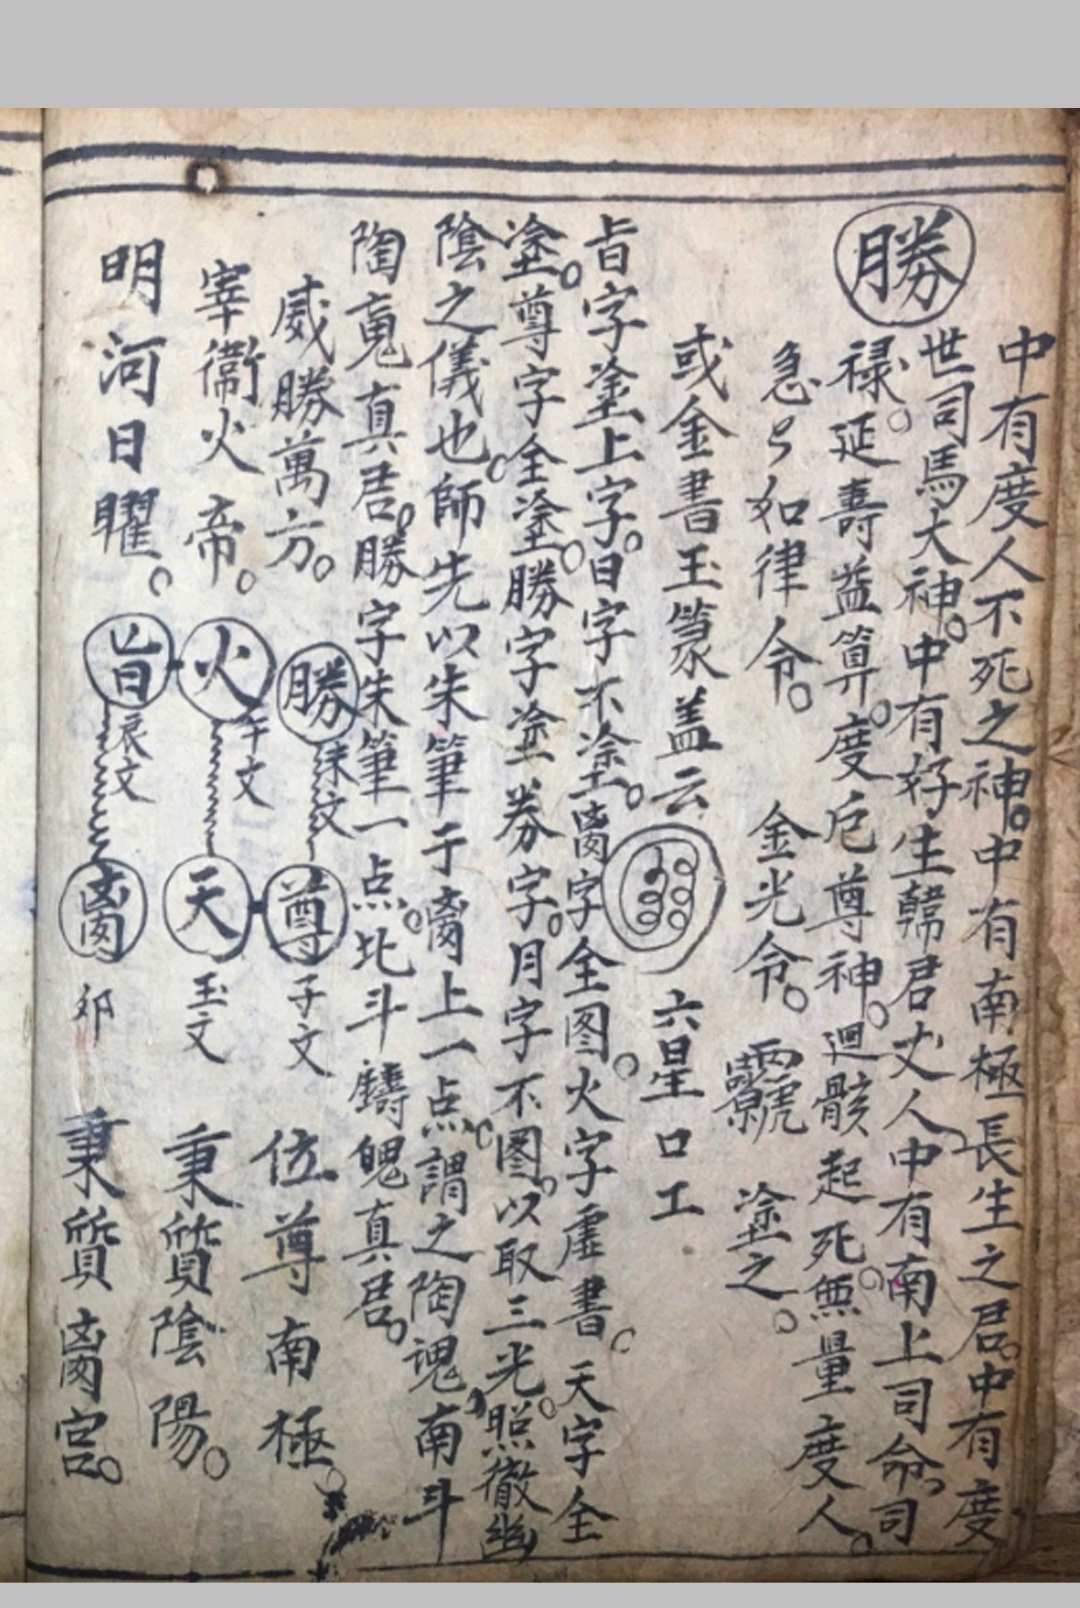 中有度人不死之神。中有南極長生之君。中有度
世司馬大神。中有好生韓君丈人中有南上司命。司
勝
祿。延壽益算。度厄尊神。迴骸起死。無量度人。
急々如律令。 金光令。 塗之。
或金書玉篆蓋云 六星口工
旨字塗上字。日字不塗。离字全图。火字虛書。天字全
塗。尊字全塗。勝字塗券字。月字不圖。以取三光。照徹幽
陰之儀也。師先以朱筆于离上一点。謂之陶魂、南斗
陶魂真君。勝字朱筆一点。北斗鑄魄真君。
威勝萬方。 勝 未文 尊 子文 位尊南極。
宰衞火帝。 火 午文 天 玉文 秉質陰陽。
明河日曜。 旨 哀文 离 夘 秉質离宫。